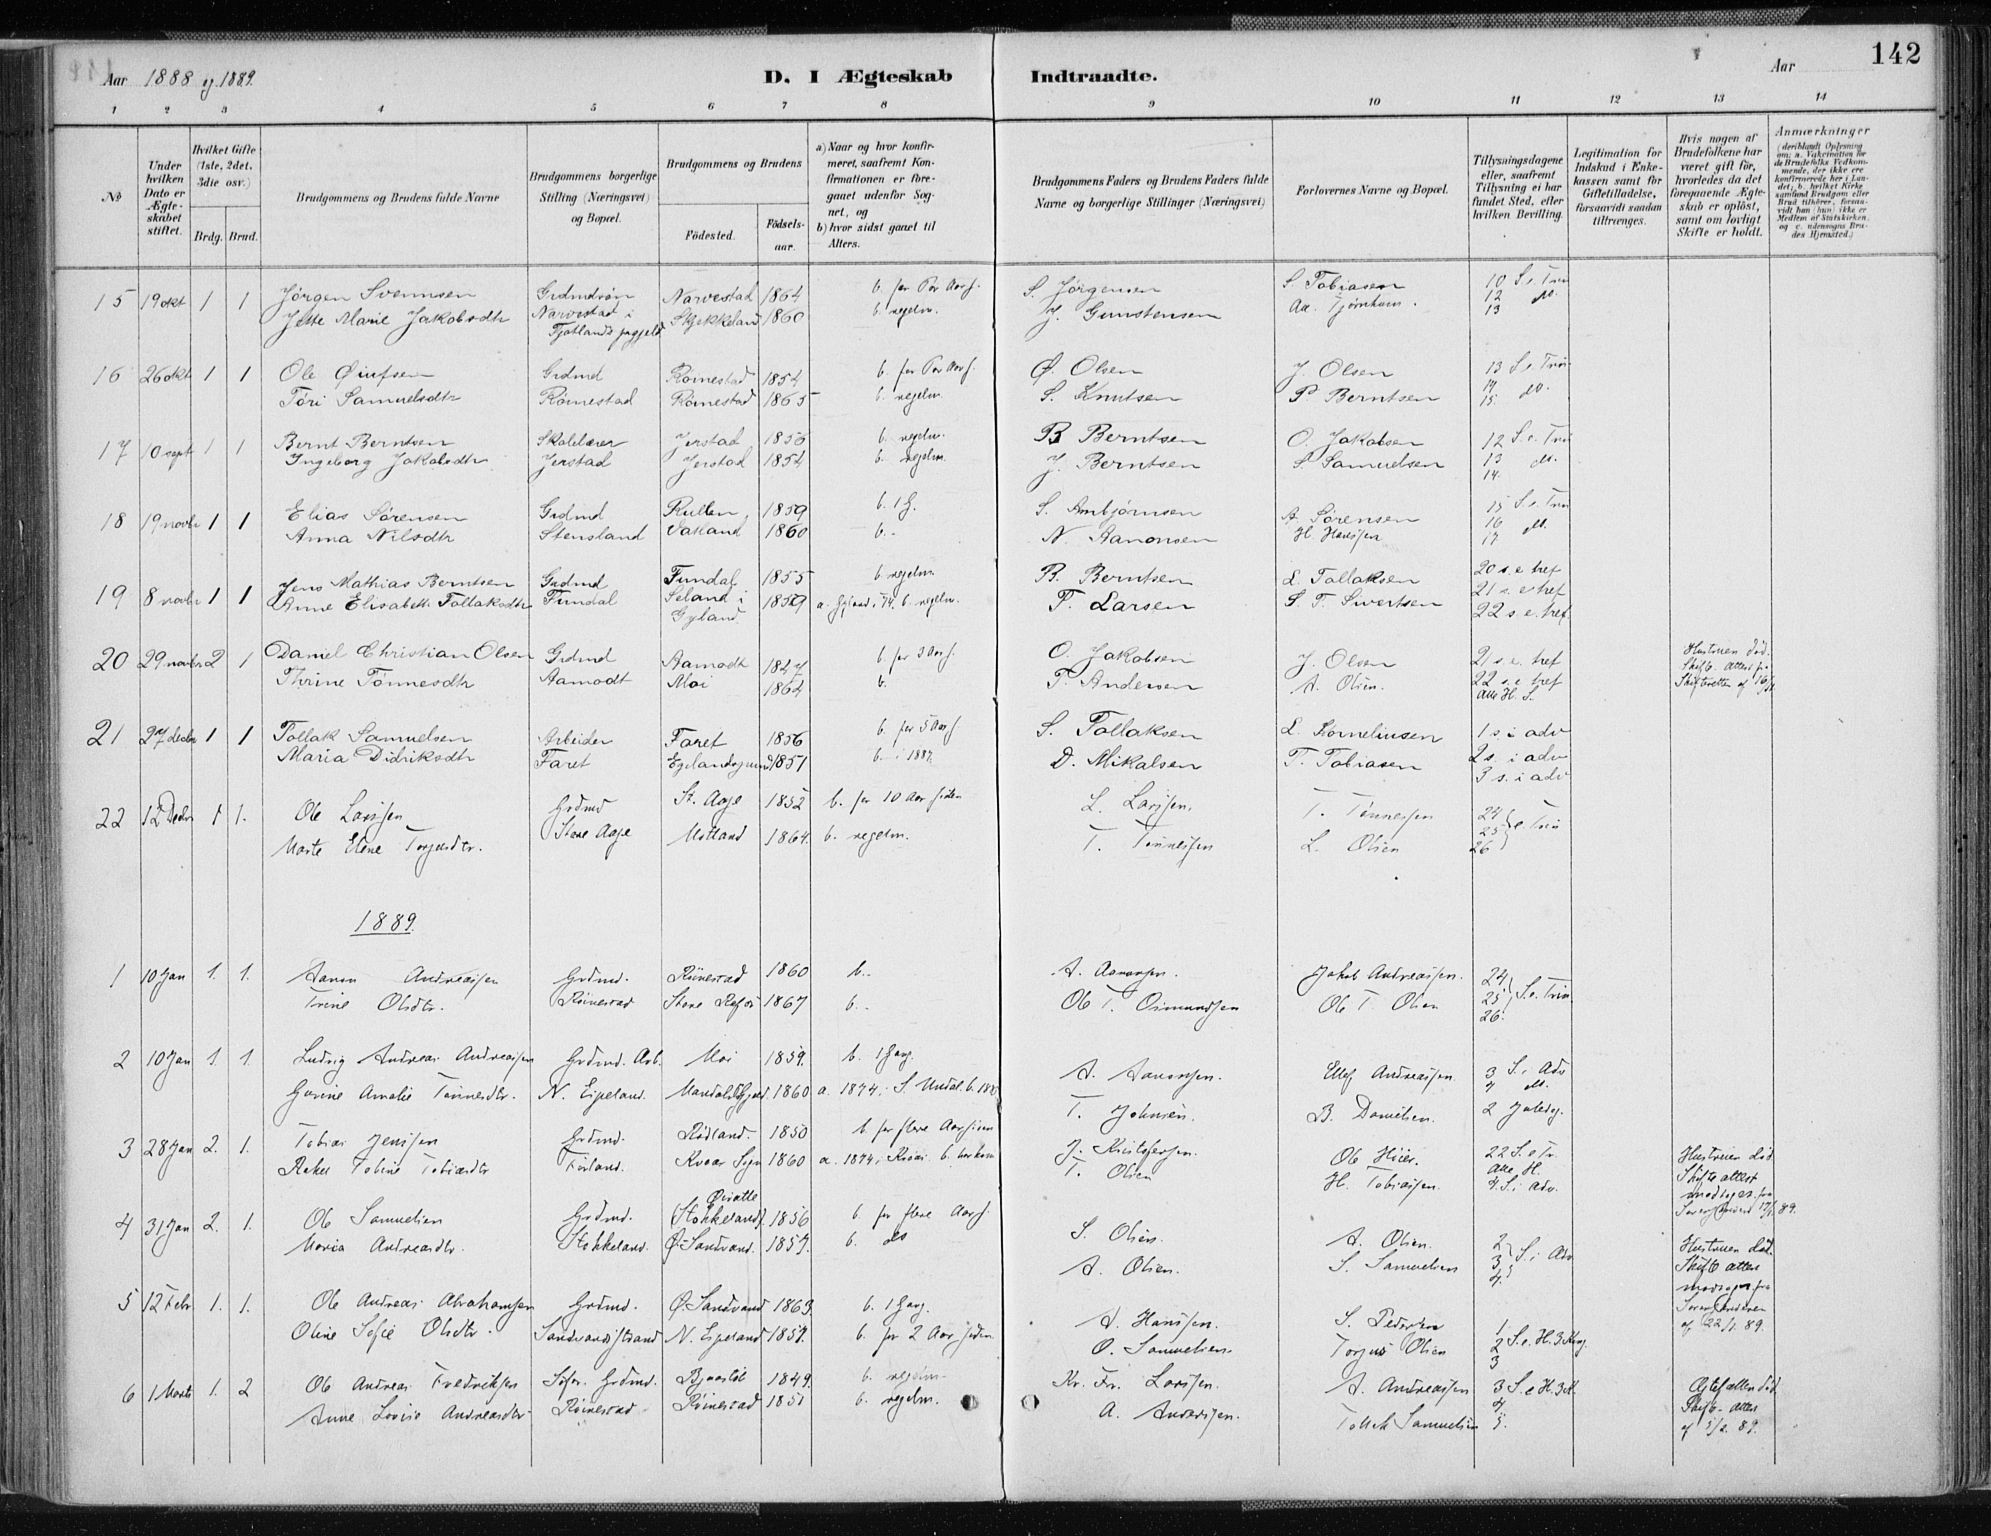 142
Aar 1888 og 1889.
D. I Ægteskab Indtraadte.
Aar
1 2 3 4 5 6 7 8 9 10 11 12 13 14
No
Under hvilken Dato er Ægteskabet stiftet.
Hvilket Gifte (1ste, 2det, 3die osv.)
Brdg. Brud.
Brudgommens og Brudens fulde Navne
Brudgommens borgerlige Stilling (Næringsvei) og Bopæl.
Brudgommens og Brudens
Fødested.
Fødselsaar.
a) Naar og hvor konfirmeret, saafremt Konfirmationen er foregaaet udenfor Sognet, og
b) hvor sidst gaaet til Alters.
Brudgommens Faders og Brudens Faders fulde Navne og borgerlige Stillinger (Næringsvei)
Forlovernes Navne og Bopæl.
Tillysningsdagene eller, saafremt Tillysning ei har fundet Sted, efter hvilken Bevilling.
Legitimation for Indskud i Enkekassen samt for Giftetilladelse, forsaavidt saadan tiltrænges.
Hvis nogen af Brudefolkene har været gift før, hvorledes da det foregaaende Ægteskab er opløst, samt om lovligt Skifte er holdt.
Anmærkninger (deriblandt Oplysning om: a. Vakcination for de Brudefolks Vedkommende, der ikke ere konfirmerede her i Landet; b. hvilket Kirkesamfund Brudgom eller Brud tilhører, forsaavidt han (hun) ikke er Medlem af Statskirken, og c. udensogns Brudes Hjemsted.)
15 19 okt 1 1 Jørgen Svennsen Grdmdsøn Narvestad 1864 b. for Par Aar s. S. Jørgensen S. Tobiasen 10 S. e. Trin
Jette Marie Jakobsdtr Narvestad i Fjotlands prgjeld Skjekkeland 1860 b. regelm. J. Gunstensen Aa. Tjørnhom. 12 do. 13
16 26 okt 1 1 Ole Øiufsen Grdmd Røinestad 1854 b. for Par Aar s. Ø. Olsen J. Olsen 13 S. e. Trin
Tøri Samuelsdtr Røinestad Røinestad 1865 b. regelm. S. Knutsen P. Berntsen 14 do. 15
17 10 sept 1 1 Bernt Berntsen Skolelærer Jerstad 1856 b. regelm. B Berntsen O. Jakobsen 12 S. e. Trin
Ingeborg Jakobsdtr Jerstad Jerstad 1854 b. regelm. J. Berntsen S. Samuelsen 13 do. 14
18 19 novbr 1 1 Elias Sørensen Grdmd Rullen 1859 b. 1 G. S. Ambjørnsen A. Sørensen 15 S. e. Trin
Anna Nilsdtr Stensland 1860 b. N. Aanonsen H. Hanssen 16 do. 17
19 8 novbr 1 1 Jens Mathias Berntsen Grdmd Fundal 1855 b regelm. B. Berntsen L. Tollaksen 20 s. e tref
Anne Elisabeth Tollaksdtr Fundal Seland i Gyland 1859 a. Gyland i 74. b. regelm. T. Larsen S. T. Sivertsen 21 s. e tref
22 s. e. tref
20 29 novbr 2 1 Daniel Christian Olsen Grdmd Aamodt 1847 b. for 3 Aar s. O. Jakobsen J. Olsen 21 s. e. tref Hustruen død.
Thrine Tønnesdtr Aamodt Moi 1864 b. T Andersen A. Olsen. 22 s. e tref Skifteretten af
Alle H. S.
21 27 decbr 1 1 Tollak Samuelsen Arbeider Faret 1856 b. for 5 Aar s. S. Tollaksen L. Kornelinsen 1 s i adv
Maria Didriksdtr Faret Egelandsgrund 1851 b. i 1887. D. Mikalsen T. Tobiasen 2 s. i adv
3 s. i adv
22 12 Decbr 1 1. Ole Larssen Grdmd St. Aage 1852 b. for 10 Aar siden L. Larssen. T. Tønnessen 24
Marte Elene Torjusdtr. Store Aage Motland 1864. b. regelm. T. Tønnessen L. Olsen 25 e. Trin
26
1889.
1 10 Jan 1. 1. Aanon Andreassen Grdmd. Røinestad 1860 b. A. Aanonsen. Jakob Andreassen. 24
Trine Olsdtr. Røinestad 1867 b. Ole T. Osmundsen Ole T. Olsen 25 S. e. Trin
26.
2 10 Jan 1. 1. Ludvig Andreas Andreassen Grdmd. Arb. Moi 1859. b. 1 Gang. A. Aanonsen. Ellef Andreassen 3 S. i Adv
Gurine Amalie Tønnesdtr. N. Eipeland. 1860 a. 1874 i S. Undal. T. Johnsen. B. Danielsen. 4 do.
2 Juledag.
3 28 Jan 2. 1. Tobias Jenssen Grdmd. Rødland. 1850 b. for flere Aar siden J. Kristofersen. Ole Hiier. 22 S. e Tr. Hustruen død
Rakel Tobine Tobiasdtr Førland. Kvaas Sogn 1860 a. 1874 i Kvaas. T. Olsen H. Tobiassen. Alle H. Skifteattest
4. S. i Adv. modtages fra
4 31 Jan 2. 1. Ole Samuelsen Grdmd. Øvatle (Stokkeland). 1856 b. for flere Aar s. S. Olsen. A. Olsen. 2
Maria Andreasdtr. Stokkeland. Ø. Sandvand. 1857. b. do A. Olsen. S. Samuelsen 3 S. i Adv Hustruen død.
4. Skifteattest modtages fra
5 12 Febr 1. 1. Ole Andreas Abrahamsen Grdmd. Ø. Sandvand 1863. b. 1 Gang. A. Hanssen. S. Pedersen 1 Sorenskriveren
Oline Sofie Olsdtr. Sandvandstrand N. Eipeland 1857. b. for 2 Aar siden. O. Samuelsen. Torjus Olsen 2 S. e. H. 3 Kong. af 22/1. 89.
3
6 1 Marts 1. 2 Ole Andreas Fredriksen Grdmd. 1849. b. regelm. Kr. Fr. Larssen. A. Andreassen 3 S. e H. 3 K. Skifte-attest
Anne Lovise Andreasdtr. Røinestad Røinestad 1851 b. regelm. A. Anderssen. Tollak Samuelsen 4.
5. af 5/2. 89.